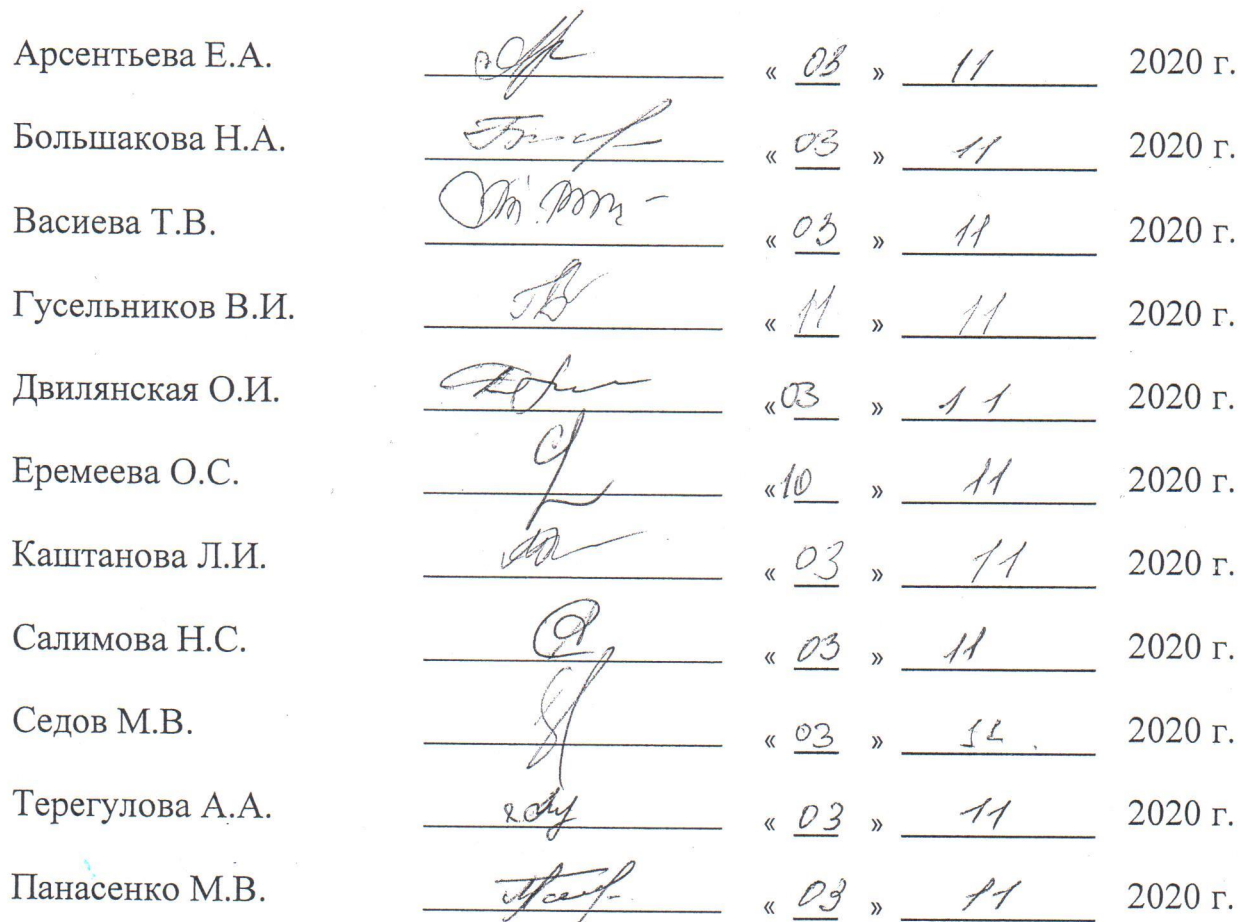 Арсентьева Е.А. « 03 » 11 2020 г.
Большакова Н.А. « 03 » 11 2020 г.
Васиева Т.В. « 03 » 11 2020 г.
Гусельников В.И. « 11 » 11 2020 г.
Двилянская О.И. « 03 » 11 2020 г.
Еремеева О.С. « 10 » 11 2020 г.
Каштанова Л.И. « 03 » 11 2020 г.
Салимова Н.С. « 03 » 11 2020 г.
Седов М.В. « 03 » 2020 г.
Терегулова А.А. « 03 » 11 2020 г.
Панасенко М.В. « 03 » 11 2020 г.